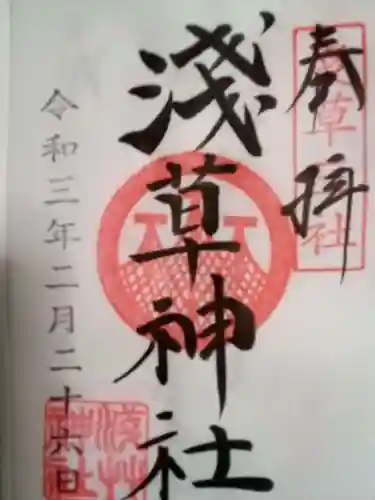 奉拝
浅草神社
淺草神社
令和三年二月二十六日
淺草神社